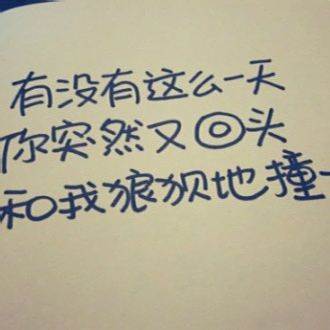 有没有这么一天
你突然又回头
和我狼狈地撞一